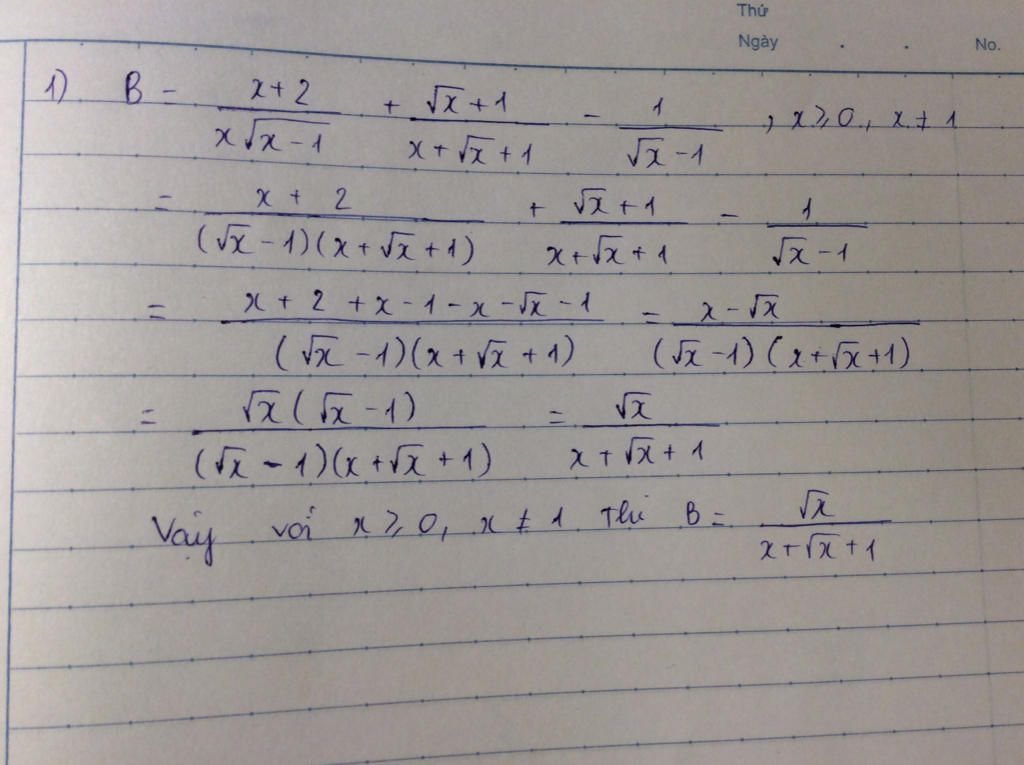 Thứ
Ngày . . No.
1) B = \frac{x+2}{x\sqrt{x-1}} + \frac{\sqrt{x}+1}{x+\sqrt{x}+1} - \frac{1}{\sqrt{x}-1} , x ⩾ 0, x ≠ 1
= \frac{x+2}{(\sqrt{x}-1)(x+\sqrt{x}+1)} + \frac{\sqrt{x}+1}{x+\sqrt{x}+1} - \frac{1}{\sqrt{x}-1}
= \frac{x+2+x-1-x-\sqrt{x}-1}{(\sqrt{x}-1)(x+\sqrt{x}+1)} = \frac{x-\sqrt{x}}{(\sqrt{x}-1)(x+\sqrt{x}+1)}
= \frac{\sqrt{x}(\sqrt{x}-1)}{(\sqrt{x}-1)(x+\sqrt{x}+1)} = \frac{\sqrt{x}}{x+\sqrt{x}+1}
Vậy với x ⩾ 0, x ≠ 1 thì B = \frac{\sqrt{x}}{x+\sqrt{x}+1}